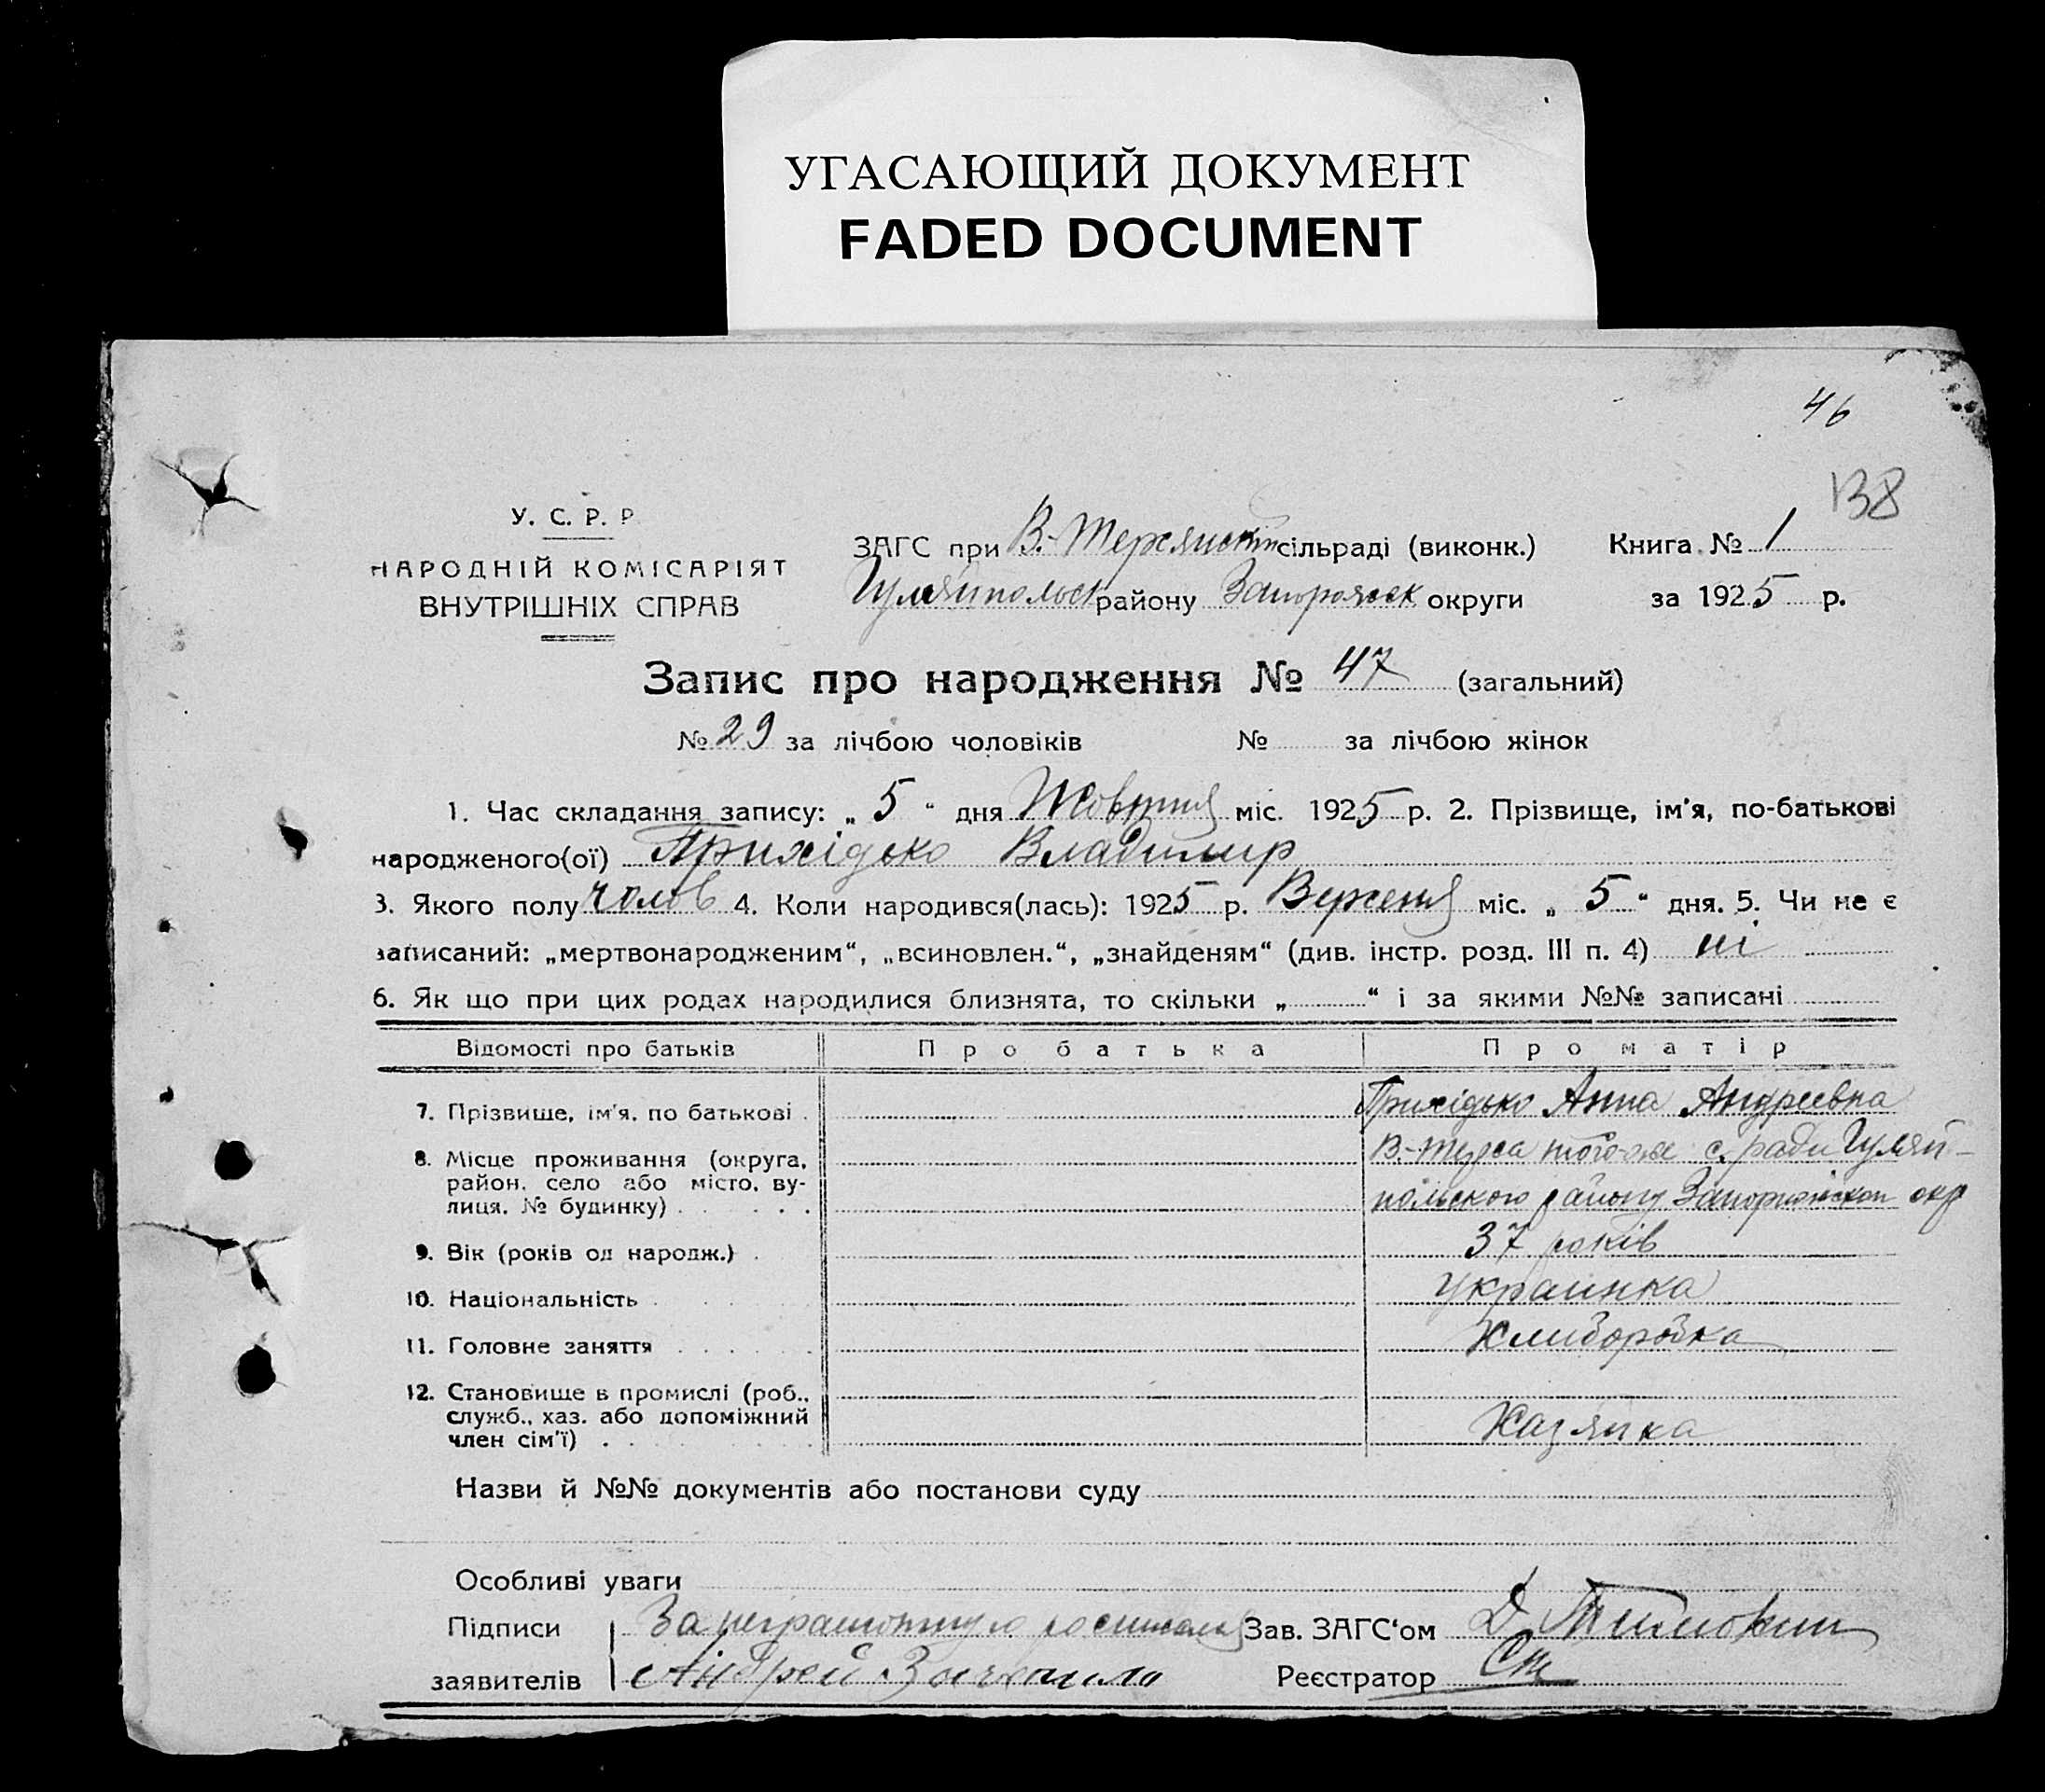 УГАСАЮЩИЙ ДОКУМЕНТ
FADED DOCUMENT
46
138
У. С. Р. Р.
НАРОДНІЙ КОМІСАРІЯТ
ВНУТРІШНІХ СПРАВ
ЗАГС при В.-Терсянскій сільраді (виконк.) Книга № 1
Гуляйпольск району Запорожск округи за 1925 р.
Запис про народження № 47 (загальний)
№ 29 за лічбою чоловіків № за лічбою жінок
1. Час складання запису: „ 5 “ дня Жовтня міс. 1925 р. 2. Прізвище, ім'я, по-батькові
народженого(ої) Прихідько Владимир
3. Якого полу чолов 4. Коли народився(лась): 1925 р. Верженя міс. „ 5 “ дня. 5. Чи не є
записаний: „мертвонародженим“, „всиновлен.“, „знайденям“ (див. інстр. розд. III п. 4) ні
6. Як що при цих родах народилися близнята, то скільки „ “ і за якими №№ записані
Відомості про батьків Про батька Про матір
7. Прізвище, ім'я, по батькові Прихідько Анна Андреевна
8. Місце проживання (округа, район, село або місто, вулиця, № будинку) В.-Терса того-же с. ради Гуляй-
польского району Запорожской окр
9. Вік (років од народж.) 37 років
10. Національність украинка
11. Головне заняття Хлиборобка
12. Становище в промислі (роб.,
служб., хаз. або допоміжний
член сім'ї) Хазяика
Назви й №№ документів або постанови суду
Особливі уваги
Підписи За неграмотную росписался Зав. ЗАГС‘ом Д.
заявителів Андрей Реєстратор